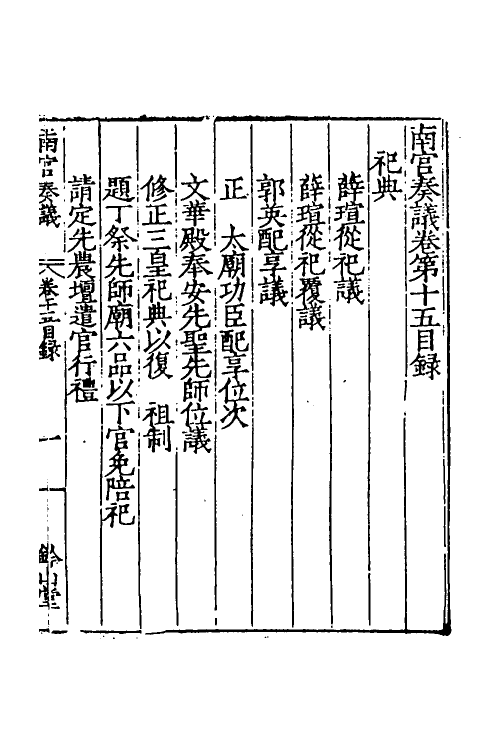 南宮奏議卷第十五目録
祀典
薛瑄從祀議
薛瑄從祀覆議
郭英配享議
正　太廟功臣配享位次
文華殿奉安先聖先師位議
修正三皇祀典以復　祖制
題丁祭先師廟六品以下官免陪祀
請定先農壇遣官行禮
南宮奏議　卷十五目録　一　鈐山堂